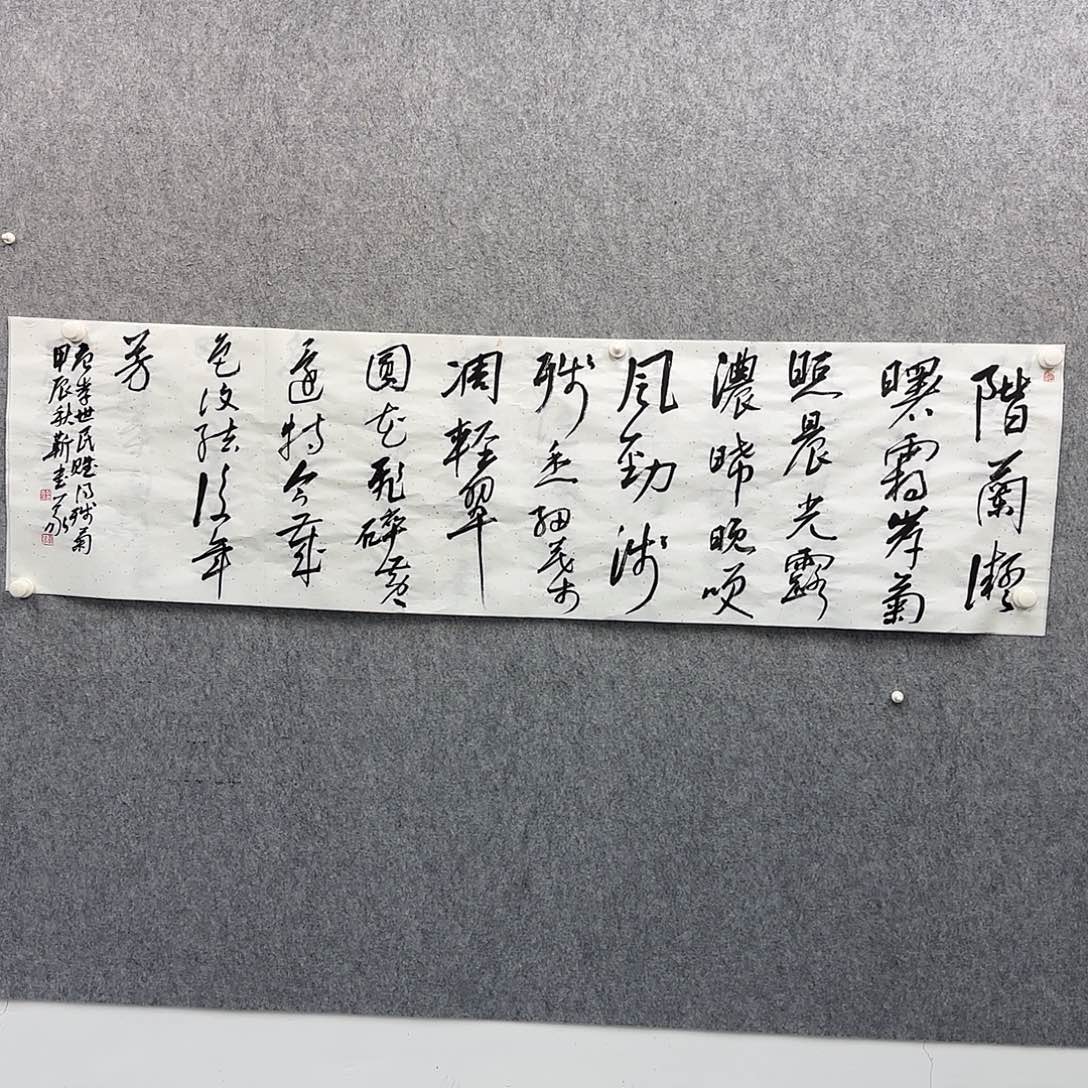 階蘭凝
曙霜岸菊
照晨光露
濃晞晚咲
風勁淺
殘香細葉
凋輕翠
圓花飛碎黃
還持今歲
色復結後年
芳
唐李世民賦得殘菊
甲辰秋